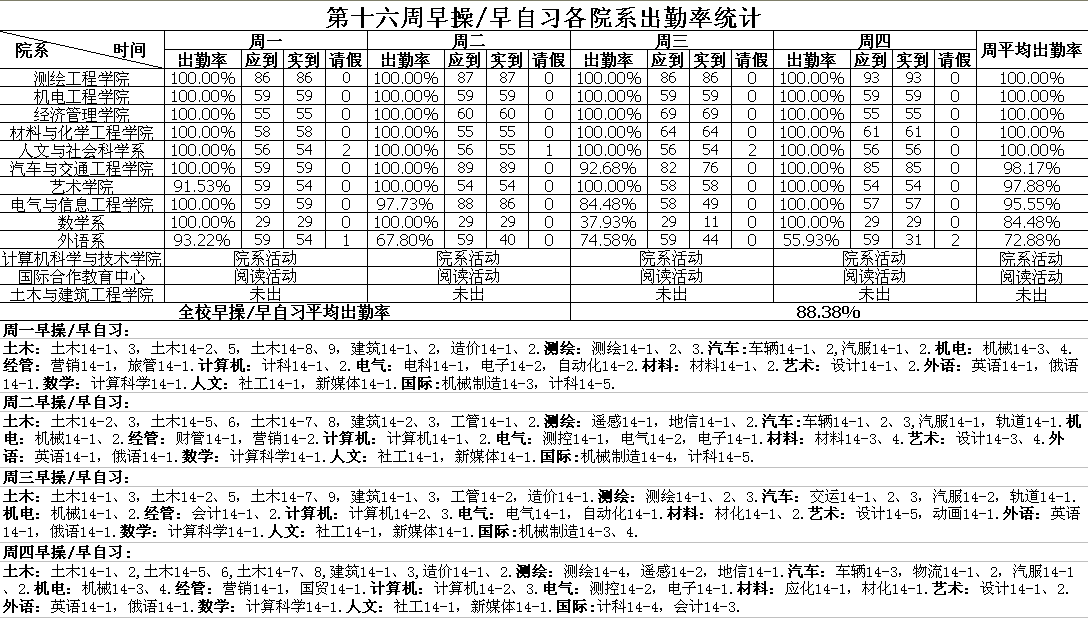 第十六周早操/早自习各院系出勤率统计
院系 时间 周一 周二 周三 周四 周平均出勤率
出勤率 应到 实到 请假 出勤率 应到 实到 请假 出勤率 应到 实到 请假 出勤率 应到 实到 请假
测绘工程学院 100.00% 86 86 0 100.00% 87 87 0 100.00% 86 86 0 100.00% 93 93 0 100.00%
机电工程学院 100.00% 59 59 0 100.00% 59 59 0 100.00% 59 59 0 100.00% 59 59 0 100.00%
经济管理学院 100.00% 55 55 0 100.00% 60 60 0 100.00% 69 69 0 100.00% 55 55 0 100.00%
材料与化学工程学院 100.00% 58 58 0 100.00% 55 55 0 100.00% 64 64 0 100.00% 61 61 0 100.00%
人文与社会科学系 100.00% 56 54 2 100.00% 56 55 1 100.00% 56 54 2 100.00% 56 56 0 100.00%
汽车与交通工程学院 100.00% 59 59 0 100.00% 89 89 0 92.68% 82 76 0 100.00% 85 85 0 98.17%
艺术学院 91.53% 59 54 0 100.00% 54 54 0 100.00% 58 58 0 100.00% 54 54 0 97.88%
电气与信息工程学院 100.00% 59 59 0 97.73% 88 86 0 84.48% 58 49 0 100.00% 57 57 0 95.55%
数学系 100.00% 29 29 0 100.00% 29 29 0 37.93% 29 11 0 100.00% 29 29 0 84.48%
外语系 93.22% 59 54 1 67.80% 59 40 0 74.58% 59 44 0 55.93% 59 31 2 72.88%
计算机科学与技术学院 院系活动 院系活动 院系活动 院系活动 院系活动
国际合作教育中心 阅读活动 阅读活动 阅读活动 阅读活动 阅读活动
土木与建筑工程学院 未出 未出 未出 未出 未出
全校早操/早自习平均出勤率 88.38%
周一早操/早自习：
土木：土木14-1、3，土木14-2、5，土木14-8、9，建筑14-1、2，造价14-1、2.测绘：测绘14-1、2、3.汽车:车辆14-1、2,汽服14-1、2.机电：机械14-3、4.
经管：营销14-1，旅管14-1.计算机：计科14-1、2.电气：电科14-1，电子14-2，自动化14-2.材料：材料14-1、2.艺术：设计14-1、2.外语：英语14-1，俄语
14-1.数学：计算科学14-1.人文：社工14-1，新媒体14-1.国际:机械制造14-3，计科14-5.
周二早操/早自习：
土木：土木14-2、3，土木14-5、6，土木14-7、8，建筑14-2、3，工管14-1、2.测绘：遥感14-1，地信14-1、2.汽车:车辆14-1、2、3,汽服14-1，轨道14-1.机
电：机械14-1、2.经管：财管14-1，营销14-2.计算机：计算机14-1、2.电气：测控14-1，电气14-2，电子14-1.材料：材料14-3、4.艺术：设计14-3、4.外
语：英语14-1，俄语14-1.数学：计算科学14-1.人文：社工14-1，新媒体14-1.国际:机械制造14-4，计科14-5.
周三早操/早自习：
土木：土木14-1、3，土木14-2、5，土木14-7、9，建筑14-1、3，工管14-2，造价14-1.测绘：测绘14-1、2、3.汽车：交运14-1、2、3，汽服14-2，轨道14-1.
机电：机械14-1、2.经管：会计14-1、2.计算机：计算机14-2、3.电气：电气14-1，自动化14-1.材料：材化14-1、2.艺术：设计14-5，动画14-1.外语：英语
14-1，俄语14-1.数学：计算科学14-1.人文：社工14-1，新媒体14-1.国际:机械制造14-3、4.
周四早操/早自习：
土木：土木14-1、2,土木14-5、6,土木14-7、8,建筑14-1、3,造价14-1、2.测绘：测绘14-4，遥感14-2，地信14-1.汽车：车辆14-3，物流14-1、2，汽服14-1
、2.机电：机械14-3、4.经管：营销14-1，国贸14-1.计算机：计算机14-2、3.电气：测控14-2，电子14-1.材料：应化14-1，材化14-1.艺术：设计14-1、2.
外语：英语14-1，俄语14-1.数学：计算科学14-1.人文：社工14-1，新媒体14-1.国际：计科14-4，会计14-3.